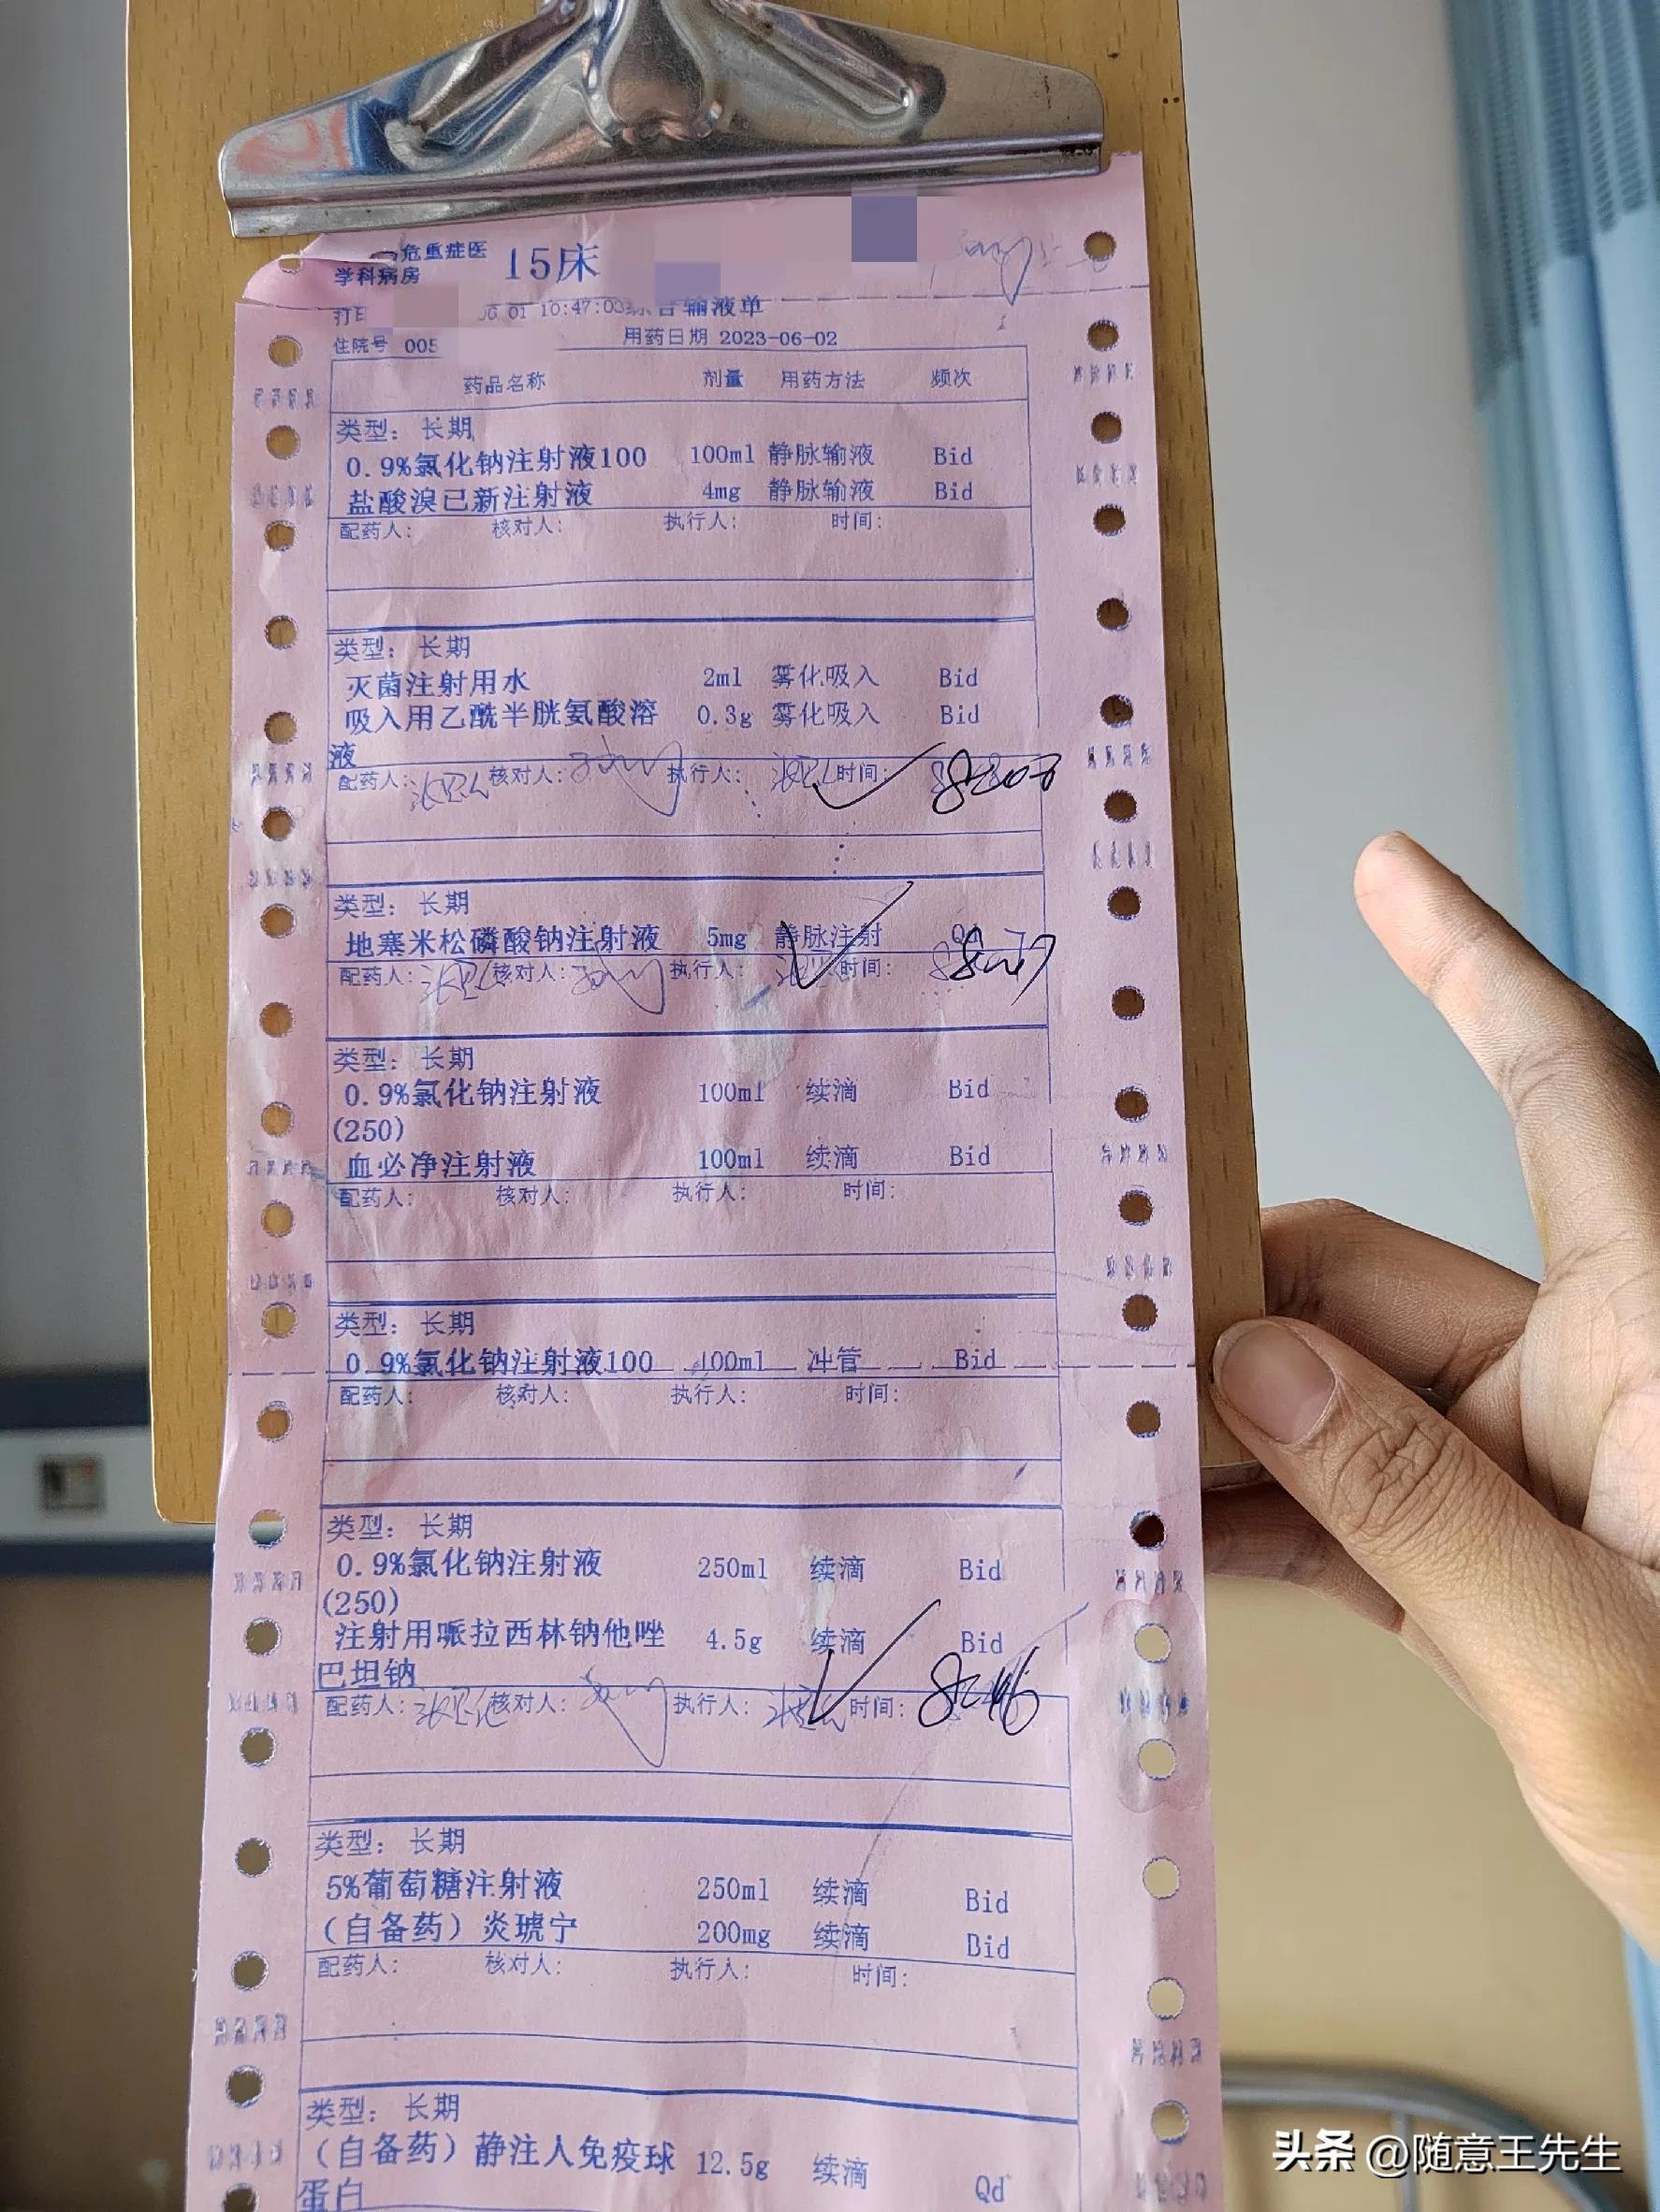 危重症医
学科病房 15床
01 10:47:03综合输液单
住院号 005 用药日期 2023-06-02
药品名称 剂量 用药方法 频次
类型：长期
0.9%氯化钠注射液100 100ml 静脉输液 Bid
盐酸溴已新注射液 4mg 静脉输液 Bid
配药人： 核对人： 执行人： 时间：
类型：长期
灭菌注射用水 2ml 雾化吸入 Bid
吸入用乙酰半胱氨酸溶 0.3g 雾化吸入 Bid
液
配药人： 核对人： 执行人： 时间：
类型：长期
地塞米松磷酸钠注射液 5mg 静脉注射 Qd
配药人： 核对人： 执行人： 时间：
类型：长期
0.9%氯化钠注射液 100ml 续滴 Bid
(250)
血必净注射液 100ml 续滴 Bid
配药人： 核对人： 执行人： 时间：
类型：长期
0.9%氯化钠注射液100 100ml 冲管 Bid
配药人： 核对人： 执行人： 时间：
类型：长期
0.9%氯化钠注射液 250ml 续滴 Bid
(250)
注射用哌拉西林钠他唑 4.5g 续滴 Bid
巴坦钠
配药人： 核对人： 执行人： 时间：
类型：长期
5%葡萄糖注射液 250ml 续滴 Bid
（自备药）炎琥宁 200mg 续滴 Bid
配药人： 核对人： 执行人： 时间：
类型：长期
（自备药）静注人免疫球 12.5g 续滴 Qd
蛋白
头条 @随意王先生